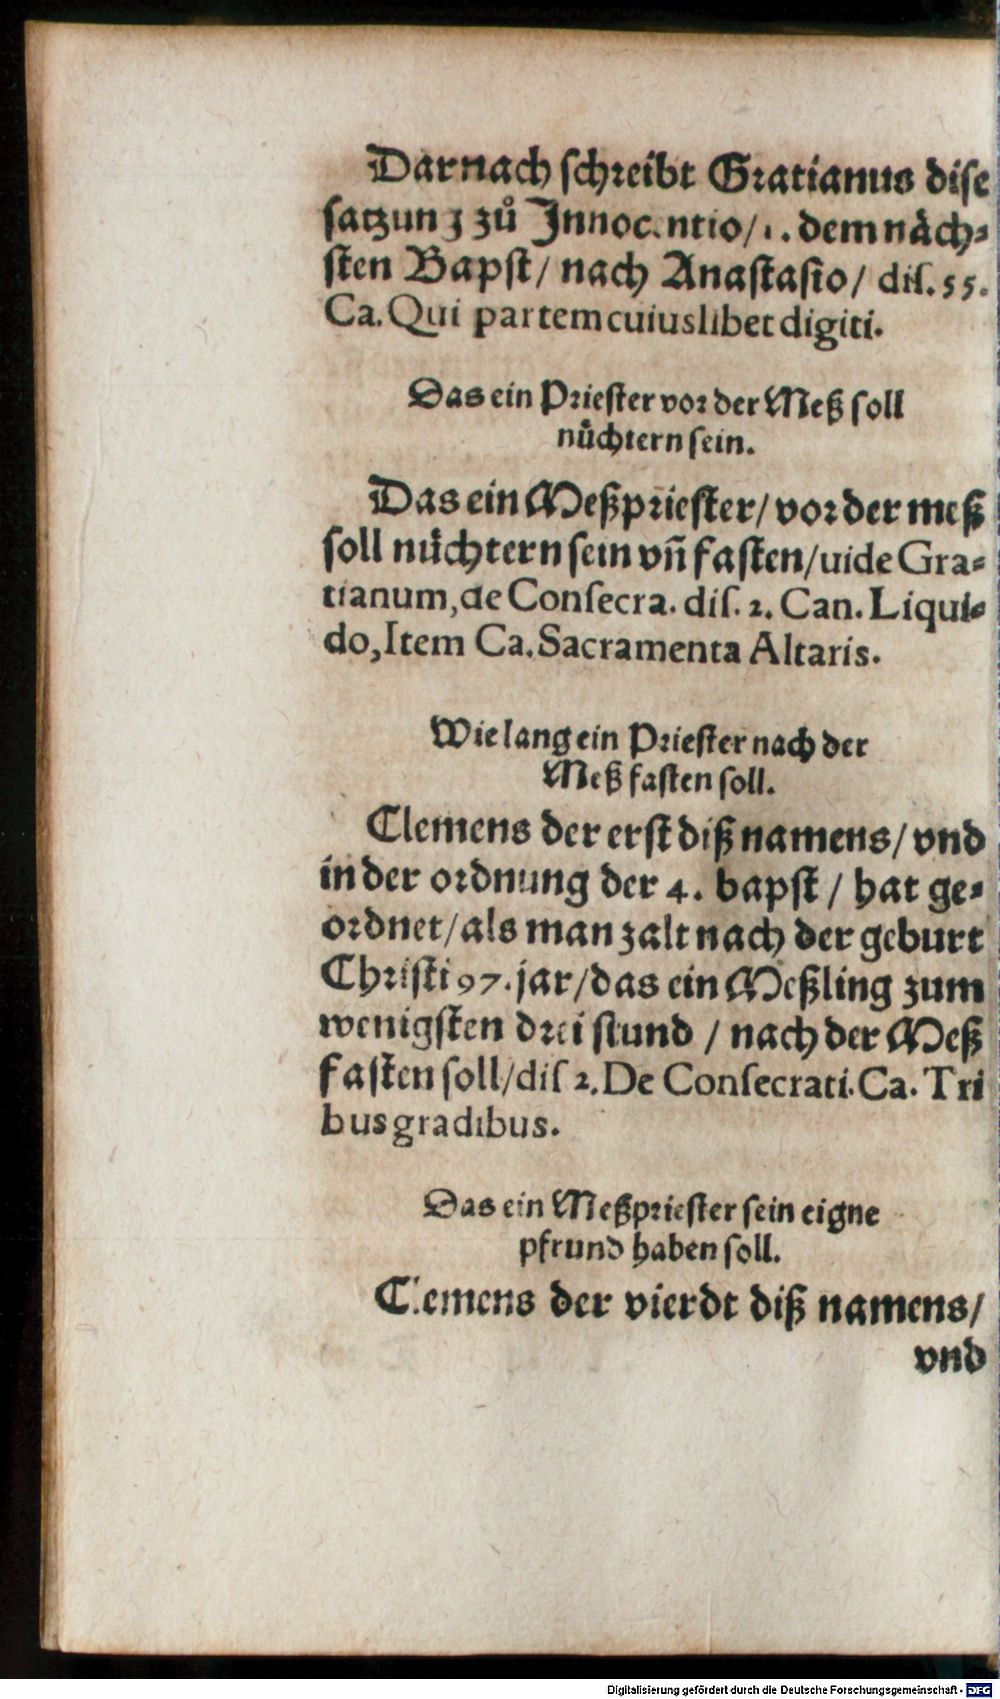 Darnach schreibt Gratianus dise
satzung zů Innocentio/1. dem nåch⸗
sten Bapst/ nach Anastasio/ dis. 55.
Ca. Qui partem cuiuslibet digiti.
Das ein Priester vor der Meß soll
nůchtern sein.
Das ein Meßpriester/ vor der meß
soll nůchtern sein vñ fasten/uide Gra⸗
tianum, de Consecra. dis. 2. Can. Liqui⸗
do, Item Ca. Sacramenta Altaris.
Wie lang ein Priester nach der
Meß fasten soll.
Clemens der erst diß namens/ vnd
in der ordnung der 4. bapst / hat ge⸗
ordnet/als man zalt nach der geburt
Christi 97. jar/das ein Meßling zum
wenigsten drei stund / nach der Meß
fasten soll/dis 2. De Consecrati. Ca. Tri
bus gradibus.
Das ein Meßpriester sein eigne
pfrund haben soll.
Clemens der vierdt diß namens/
vnd
Digitalisierung gefördert durch die Deutsche Forschungsgemeinschaft - DFG